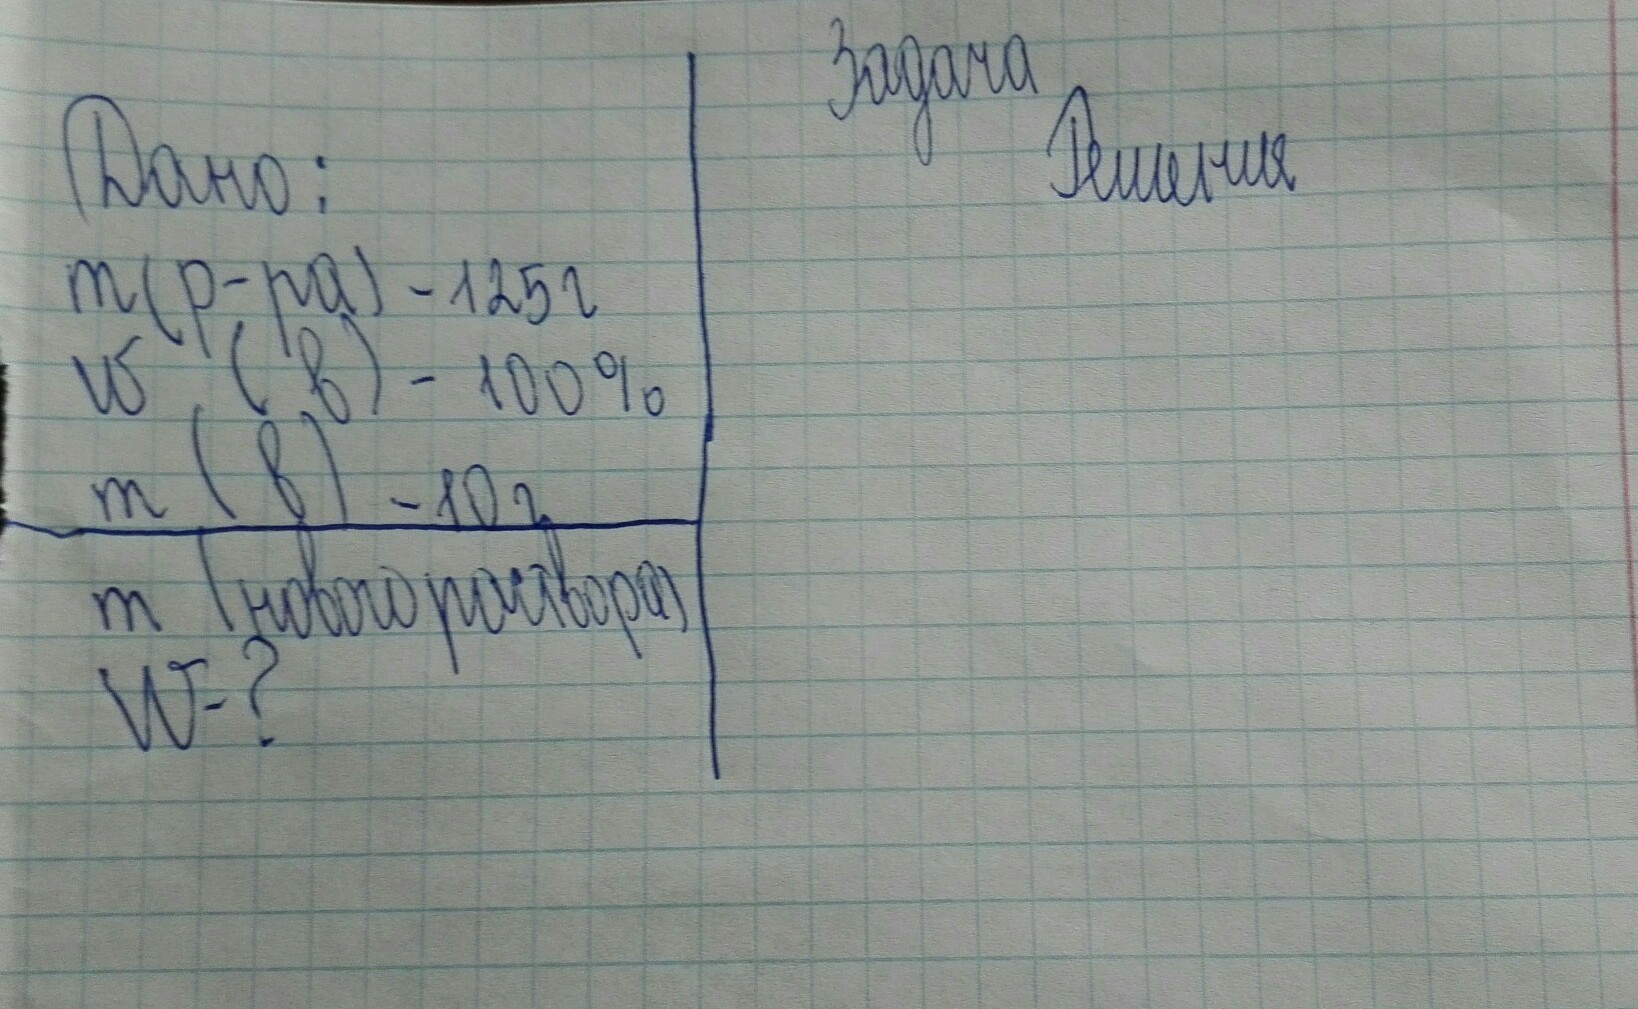 Задача
Решения
Дано:
m(р-ра) - 125г
W (в) - 100%
m (в) - 10г
m (нового раствора)
W-?